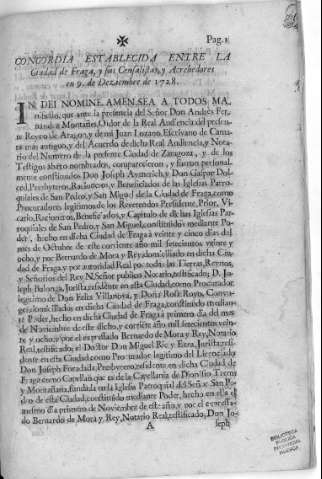 Pag. 1
CONCORDIA ESTABLECIDA ENTRE LA
Ciudad de Fraga, y sus Censalistas, y Acrehedores
en 9. de Deziembre de 1728.
IN DEI NOMINE AMEN. SEA A TODOS MA-
nifiesto, que ante la presencia del Señor Don Andrès Fer-
nando Montañès, Oidor de la Real Audiencia del presen-
te Reyno de Aragon, y de mi Juan Lozano, Escrivano de Cama-
ra mas antiguo, y del Acuerdo de dicha Real Audiencia, y Nota-
rio del Numero de la presente Ciudad de Zaragoza, y de los
Testigos abaxo nombrados, comparecieron, y fueron personal-
mente constituidos Don Joseph Aymerich, y Don Gaspar Dol-
Presbyteros, Racioneros, y Beneficiados de las Iglesias Parro-
quiales de San Pedro, y San Miguel de la Ciudad de Fraga, como
Procuradores legitimos de los Reverendos Presidente, Prior, Vi-
cario, Racioneros, Beneficiados, y Capitulo de dichas Iglesias Par-
roquiales de San Pedro, y San Miguel, constituidos mediante Po-
der, hecho en dicha Ciudad de Fraga à veinte y cinco dias del
mes de Octubre de este corriente año mil setecientos veinte y
ocho, y por Bernardo de Mora y Rey, domiciliado en dicha Ciu-
dad de Fraga, y por autoridad Real por todas las Tierras, Reynos,
y Señorios del Rey N. Señor publico Notario, testificado; D. Jo-
seph Balonga, Jurista, residente en esta Ciudad, como Procurador
legitimo de Don Felix Villanova, y Doña Rosa Royo, Conyu-
ges, domiciliados en dicha Ciudad de Fraga, constituido mediante
Poder, hecho en dicha Ciudad de Fraga à primero dia del mes
de Noviembre de este dicho, y corriente año mil setecientos vein-
te y ocho, y por el expresado Bernardo de Mora y Rey, Notario
Real, testificado; el Doctor Don Miguel Ric y Exea, Jurista, resi-
dente en esta Ciudad, como Procurador legitimo del Licenciado
Don Joseph Foradada, Presbytero, residente en dicha Ciudad de
Fraga como Capellan que es de la Capellania de Dionisio Torres
y Montañana, fundada en la Iglesia Parroquial del Señor San Pe-
dro de esta Ciudad, constituido mediante Poder, hecho en ella el
mesmo dia primero de Noviembre de este año, y por el expressa-
do Bernardo de Mora y Rey, Notario Real, testificado, Don Jo-
A seph
BIBLIOTECA
PUBLICA
HUESCA